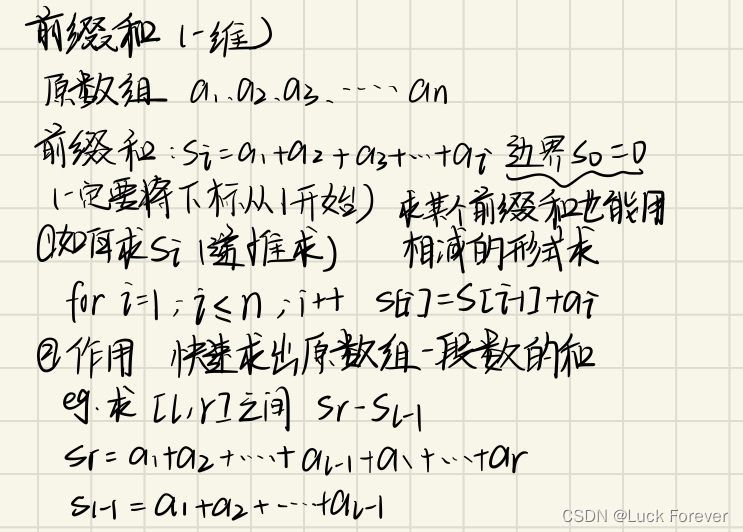 前缀和（一维）
原数组 a₁、a₂、a₃、····· aₙ
前缀和：Sᵢ=a₁+a₂+a₃+···+aᵢ 边界S₀=0
（一定要将下标从1开始） 求某个前缀和也能用
①如何求Sᵢ（递推求） 相减的形式求
for i=1；i≤n；i++ S[i]=S[i-1]+aᵢ
②作用 快速求出原数组一段数的和
eg.求[l,r]之间 Sr-Sₗ₋₁
Sr=a₁+a₂+····+aₗ₋₁+aₗ+···+ar
Sₗ₋₁=a₁+a₂+····+aₗ₋₁
CSDN @Luck Forever